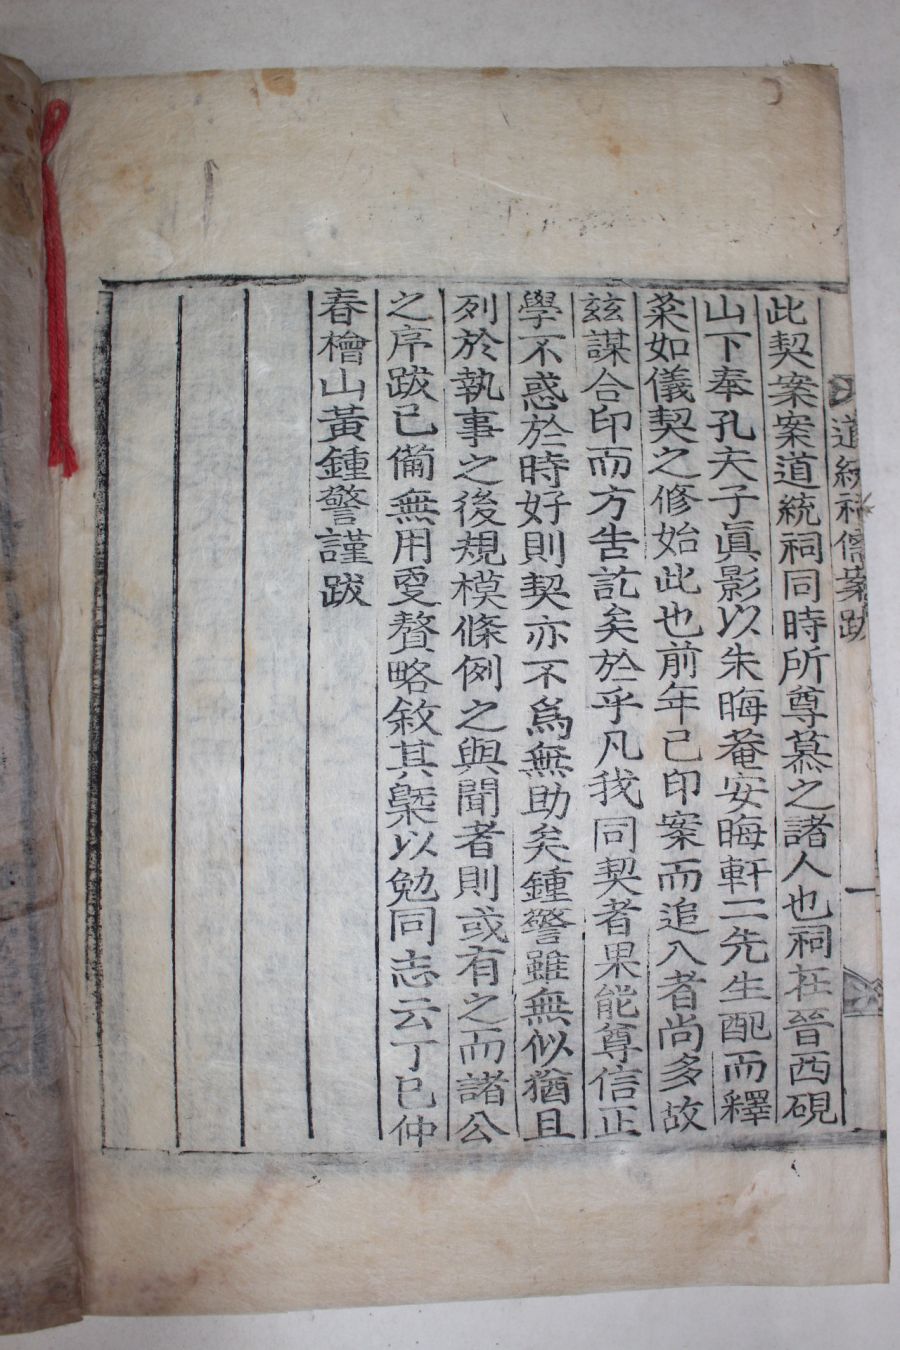 道統祠儒案跋
一
此契案案道統祠同時所尊慕之諸人也祠在晉西硯
山下奉孔夫子眞影以朱晦菴安晦軒二先生配而釋
菜如儀契之修始此也前年已印案而追入者尚多故
玆謀合印而方告訖矣於乎凡我同契者果能尊信正
學不惑於時好則契亦不爲無助矣鍾警雖無似猶且
列於執事之後規模條例之與聞者則或有之而諸公
之序跋已備無用更贅略敘其槩以勉同志云丁巳仲
春檜山黃鍾警謹跋